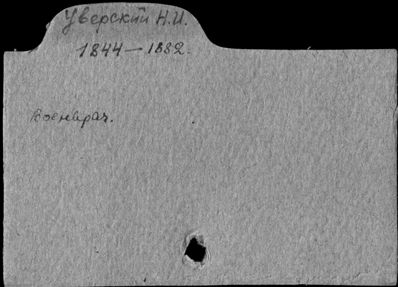 Уверский Н.И.
1844-1882.
Военврач.